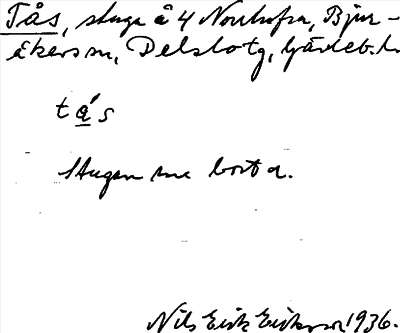 Tås, stuga å 4 Norrhofra, Bjur-
åkers sn, Delsbo tg, Gävleb. l.
tá̲s
Stugan nu borta.
Nils Erik Eriksson 1936.